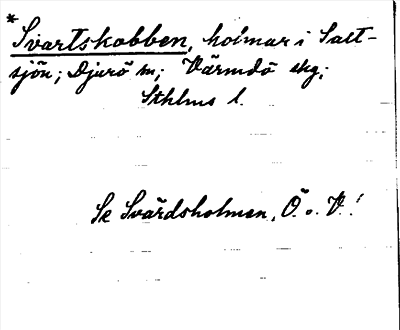 * Svartskobben, holmar i Salt-
sjön; Djurö sn; Värmdö skg;
Sthlms l.
Se Svärdsholmen, Ö. o. V.!